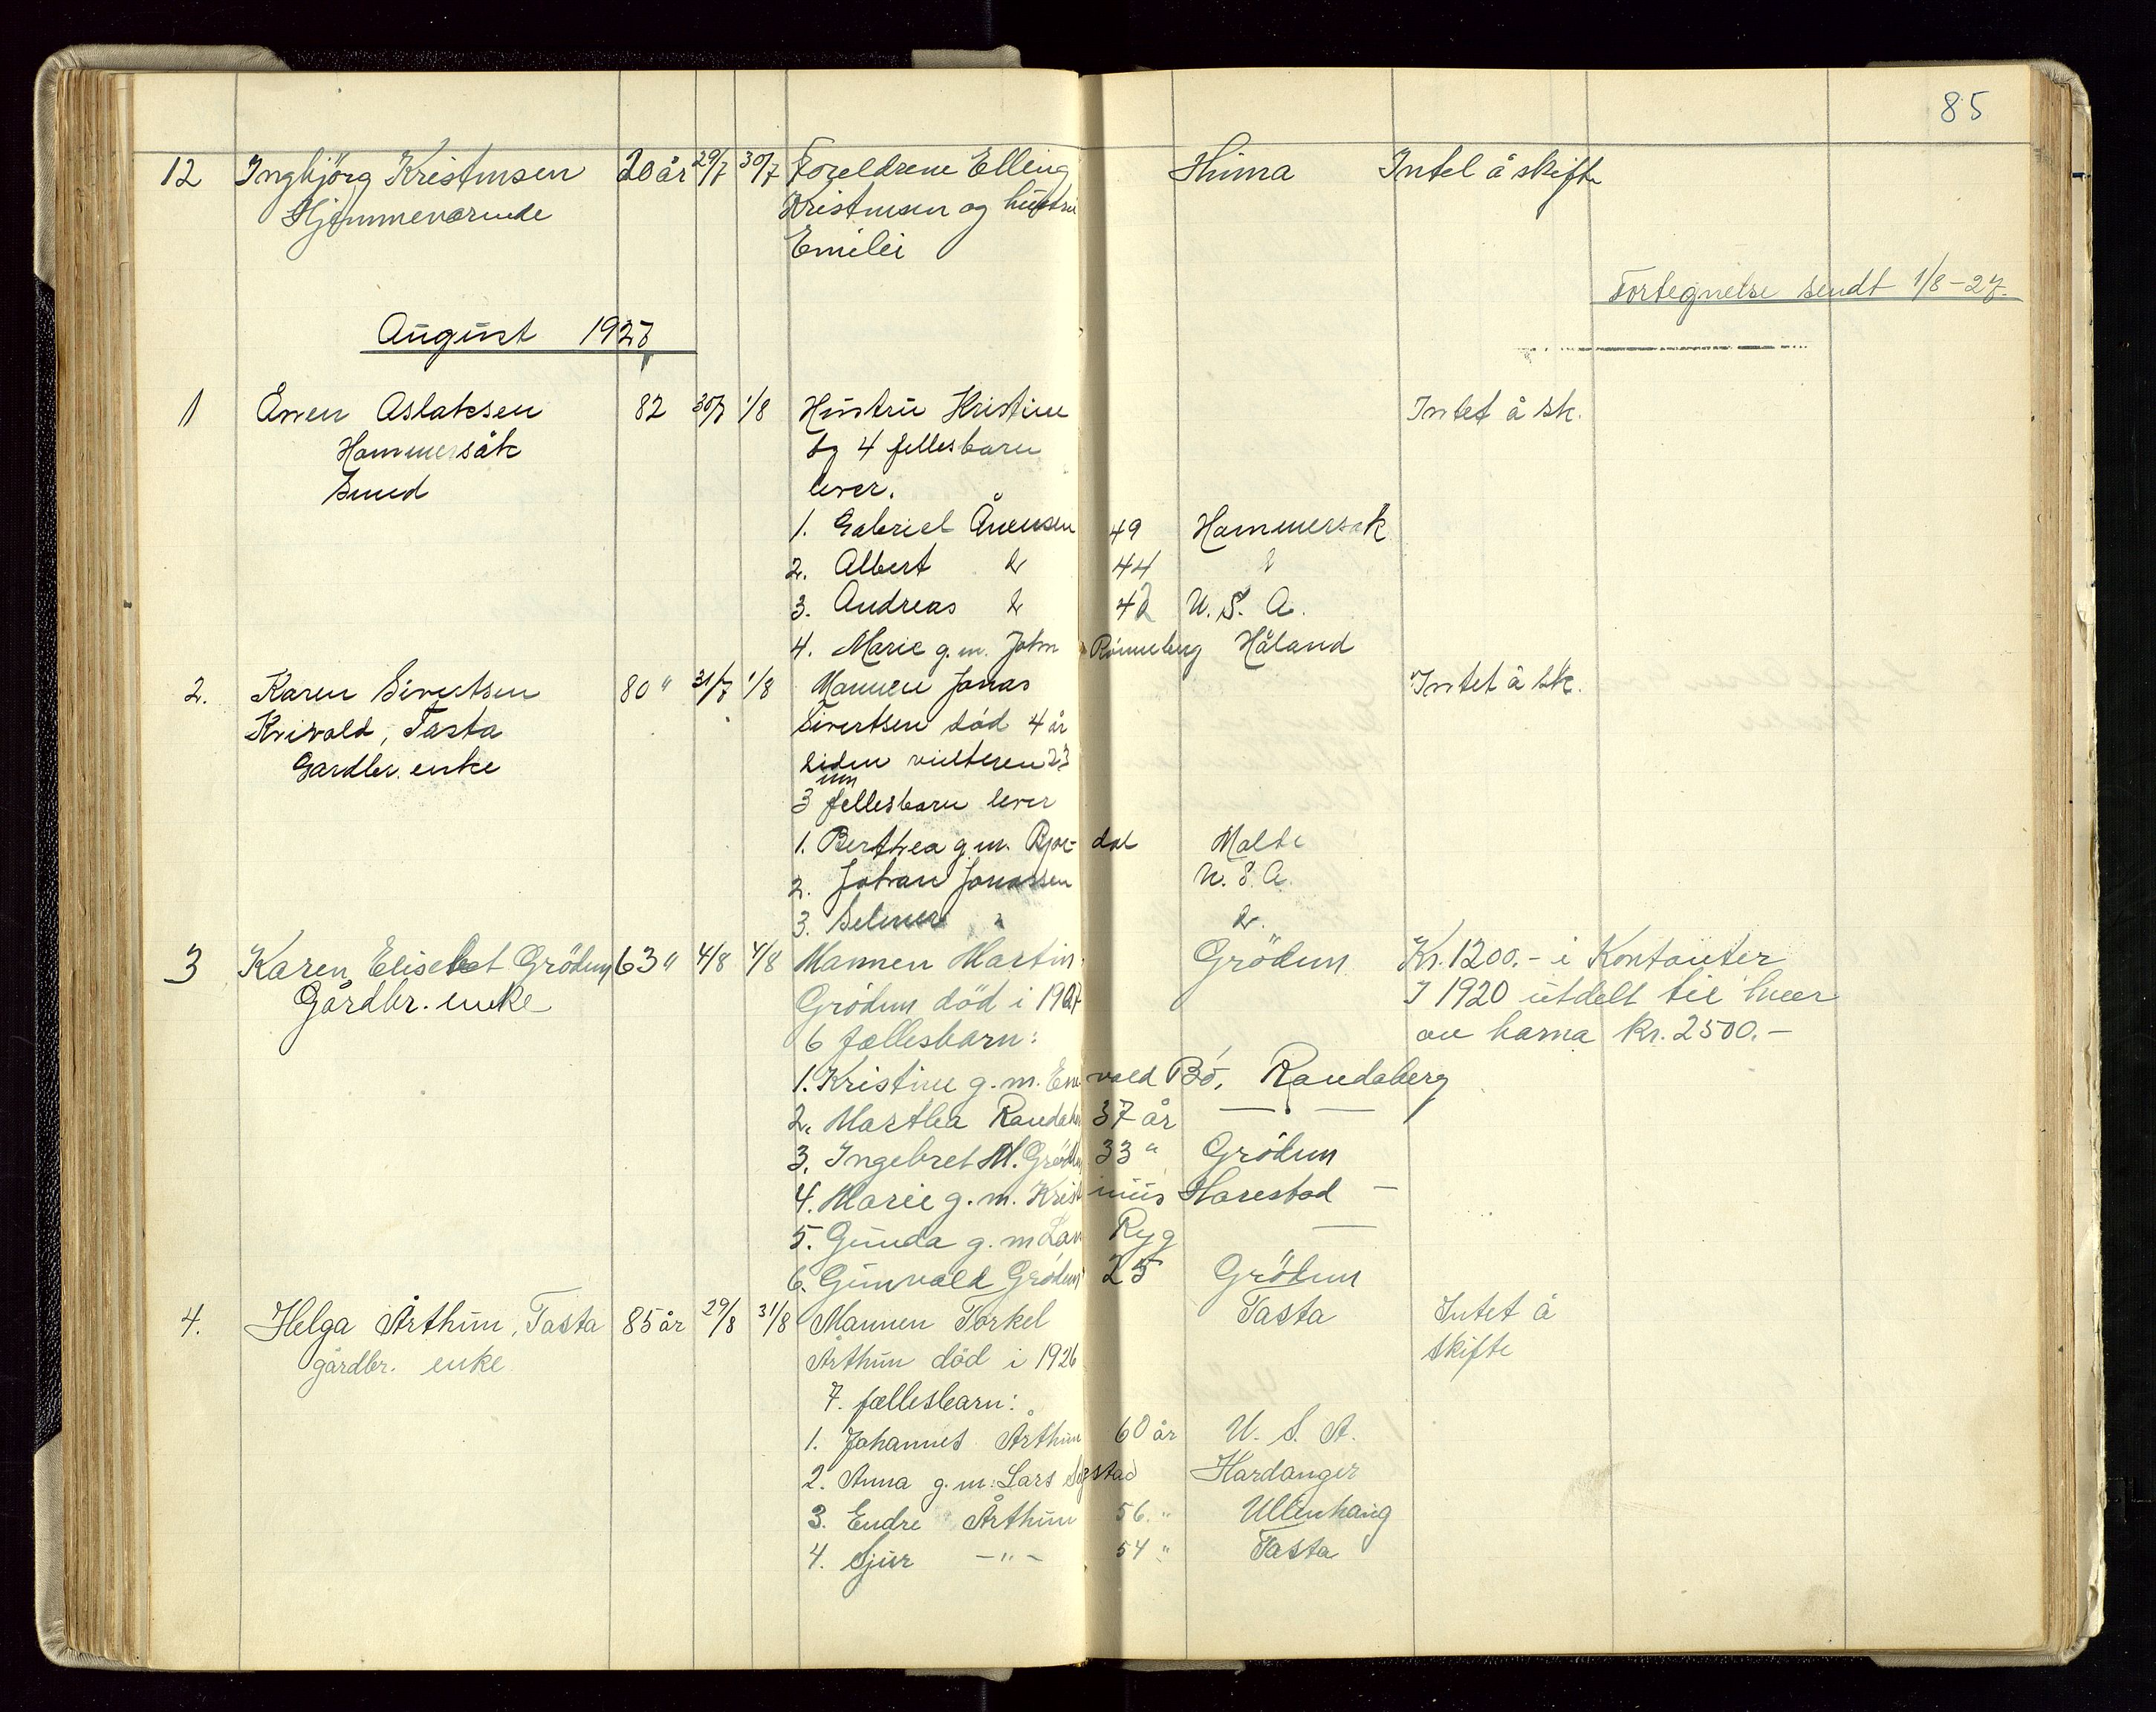 85
12 Ingbjörg Kristensen 20 år 29/7 30/7 Foreldrene Elling Hinna Intet å skifte
Hjemmeværende Kristensen og hustru
Emilie
Fortegnelse sendt 1/8-27.
August 1927
1 Aslaksen 82 30/7 1/8 Hustru Kristine Intet å sk.
Hammersåk og 4 fellesbarn
Smed lever.
1. Gabriel Ånensen 49 Hammersåk
2. Albert 44
3. Andreas 42 U. S. A.
4. Marie g.m. John Rönneberg Håland
2. Karen Sivertsen 80 " 31/7 1/8 Mannen Jonas Intet å sk.
Tasta Sivertsen död 4 år
Gardbr. enke siden
3 fellesbarn lever
1. Berthea g.m. dal
2. Johan Jonassen U. S. A.
3. Selmer "
3 Karen Elisebet Grödem 63 " 4/8 4/8 Mannen Martin Grödem Kr. 1200.- i Kontanter
Gårdbr. enke Grödem död i 1927 I 1920 utdelt til hver
6 fællesbarn: av barna kr. 2500.-
1. Kristine g.m. Enevald Bö, Randaberg
2. Martha Randaberg 37 år — " —
3. Ingebret M. Grödem 33 " Grödem
4. Marie g.m. Kristinius Harestad —
5. Gunda g.m. Lars Ryg —
6. Gunvald Grödem 25 Grödem
4. Helga Årthun, Tasta 85 år 29/8 31/8 Mannen Torkel Tasta Intet å
gårdbr. enke Årthun död i 1926 skifte
7. fællesbarn:
1. Johannes Årthun 60 år U. S. A.
2. Anna g.m. Lars Hardanger
3. Endre Årthun 56 " Ullenhaug
4. Sjur —"— 54 " Tasta